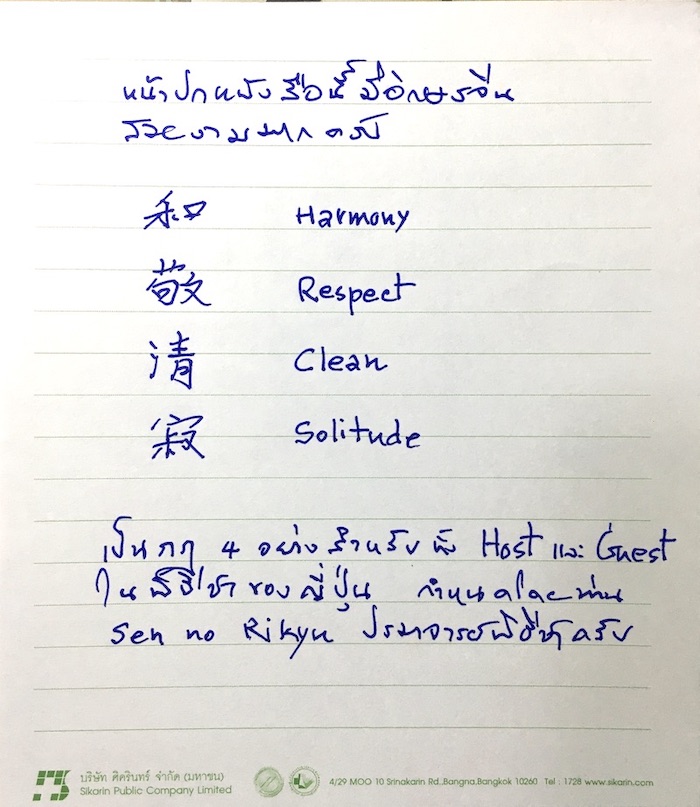 หน้าปกหนังสือนี้ มีอักษรจีน
สวยงามมากครับ
和 Harmony
敬 Respect
清 Clean
寂 Solitude
เป็นกฎ 4 อย่างสำหรับทั้ง Host และ Guest
ในพิธีชาของญี่ปุ่น กำหนดโดยท่าน
Sen no Rikyu ปรมาจารย์พิธีชาครับ
บริษัท ศิครินทร์ จำกัด (มหาชน)
Sikarin Public Company Limited
4/29 MOO 10 Srinakarin Rd.,Bangna,Bangkok 10260 Tel : 1728 www.sikarin.com